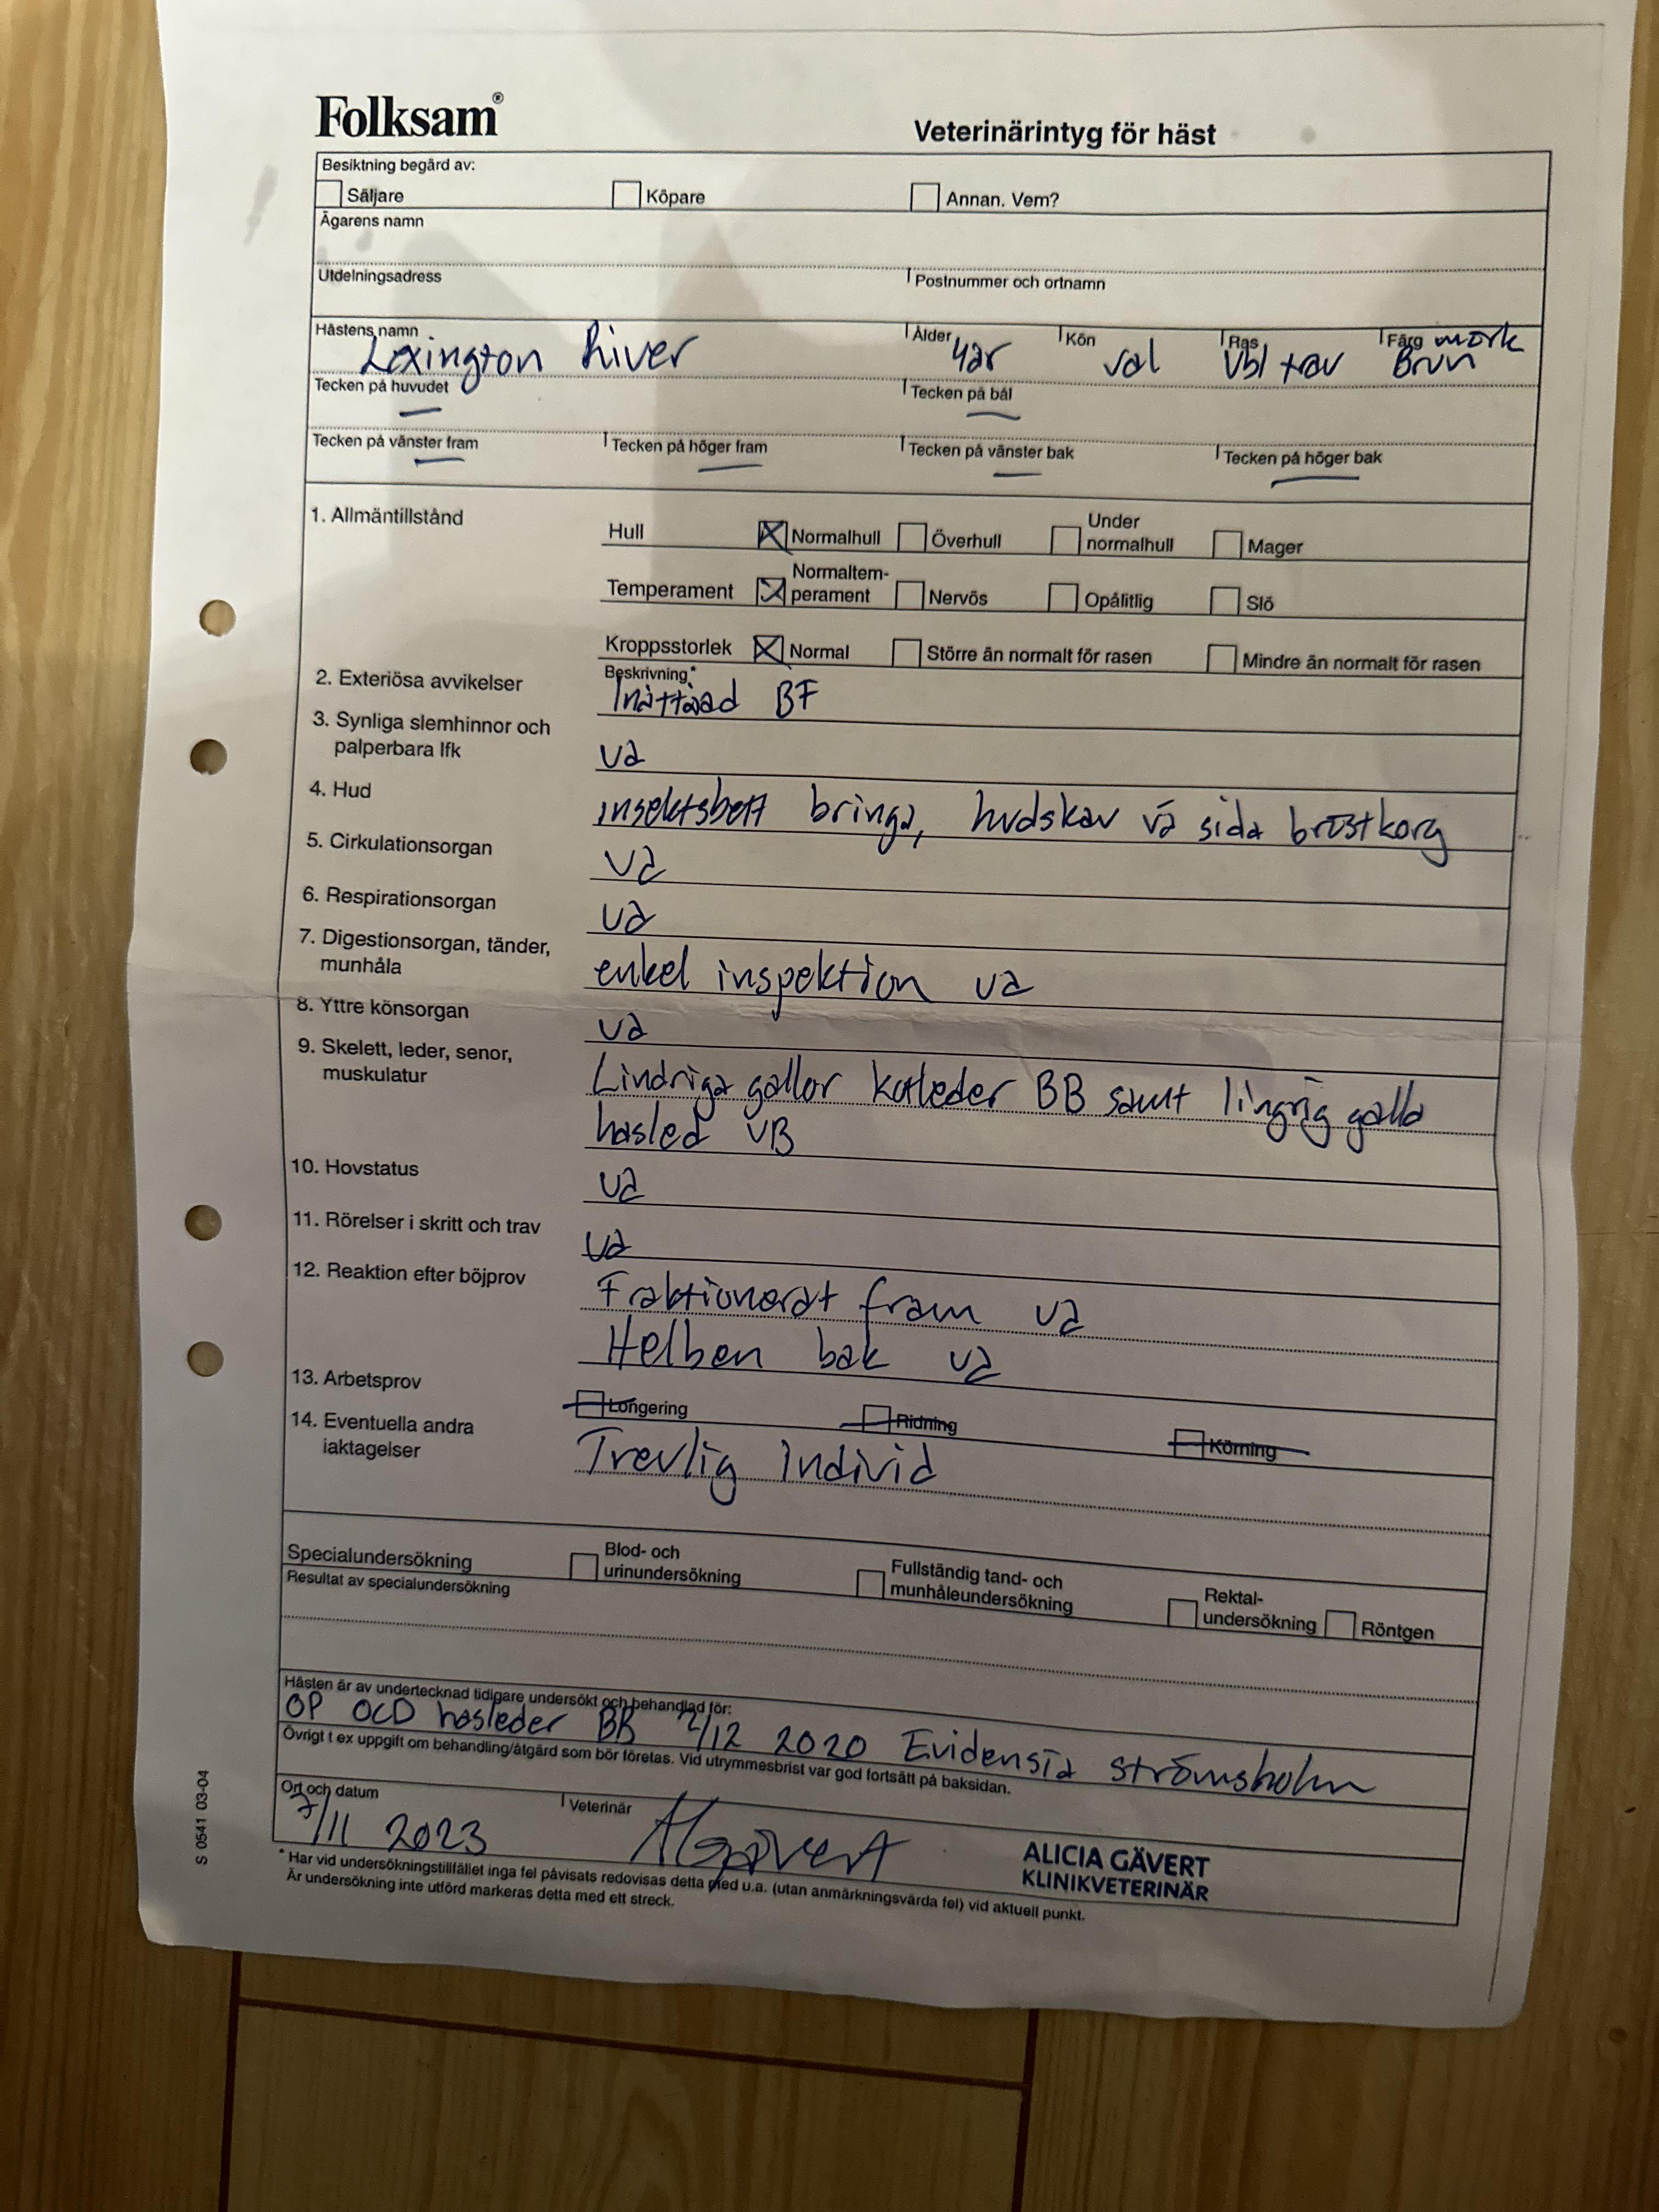 Folksam®
Veterinärintyg för häst
Besiktning begärd av:
Säljare Köpare Annan. Vem?
Ägarens namn
Utdelningsadress Postnummer och ortnamn
Hästens namn Ålder Kön Ras Färg mörk
Lexington River 4år val Vbl trav Brun
Tecken på huvudet Tecken på bål
Tecken på vänster fram Tecken på höger fram Tecken på vänster bak Tecken på höger bak
1. Allmäntillstånd
Hull Normalhull Överhull Under normalhull Mager
Temperament Normaltem-
perament Nervös Opålitlig Slö
Kroppsstorlek Normal Större än normalt för rasen Mindre än normalt för rasen
2. Exteriösa avvikelser Beskrivning*
Inåttåad BF
3. Synliga slemhinnor och
palperbara lfk ua
4. Hud insektsbett bringa, hudskav vä sida bröstkorg
5. Cirkulationsorgan ua
6. Respirationsorgan ua
7. Digestionsorgan, tänder,
munhåla enkel inspektion ua
8. Yttre könsorgan ua
9. Skelett, leder, senor,
muskulatur Lindriga gallor kotleder BB samt lingrig galla
hasled VB
10. Hovstatus ua
11. Rörelser i skritt och trav ua
12. Reaktion efter böjprov Fraktionerat fram ua
Helben bak ua
13. Arbetsprov Longering Ridning Körning
14. Eventuella andra
iaktagelser Trevlig individ
Specialundersökning Blod- och
urinundersökning Fullständig tand- och
munhåleundersökning Rektal-
undersökning Röntgen
Resultat av specialundersökning
Hästen är av undertecknad tidigare undersökt och behandlad för:
OP OCD hasleder BB 2/12 2020 Evidensia Strömsholm
Övrigt t ex uppgift om behandling/åtgärd som bör företas. Vid utrymmesbrist var god fortsätt på baksidan.
Ort och datum Veterinär
7/11 2023 AGävert
ALICIA GÄVERT
KLINIKVETERINÄR
* Har vid undersökningstillfället inga fel påvisats redovisas detta med u.a. (utan anmärkningsvärda fel) vid aktuell punkt.
Är undersökning inte utförd markeras detta med ett streck.
S 0541 03-04